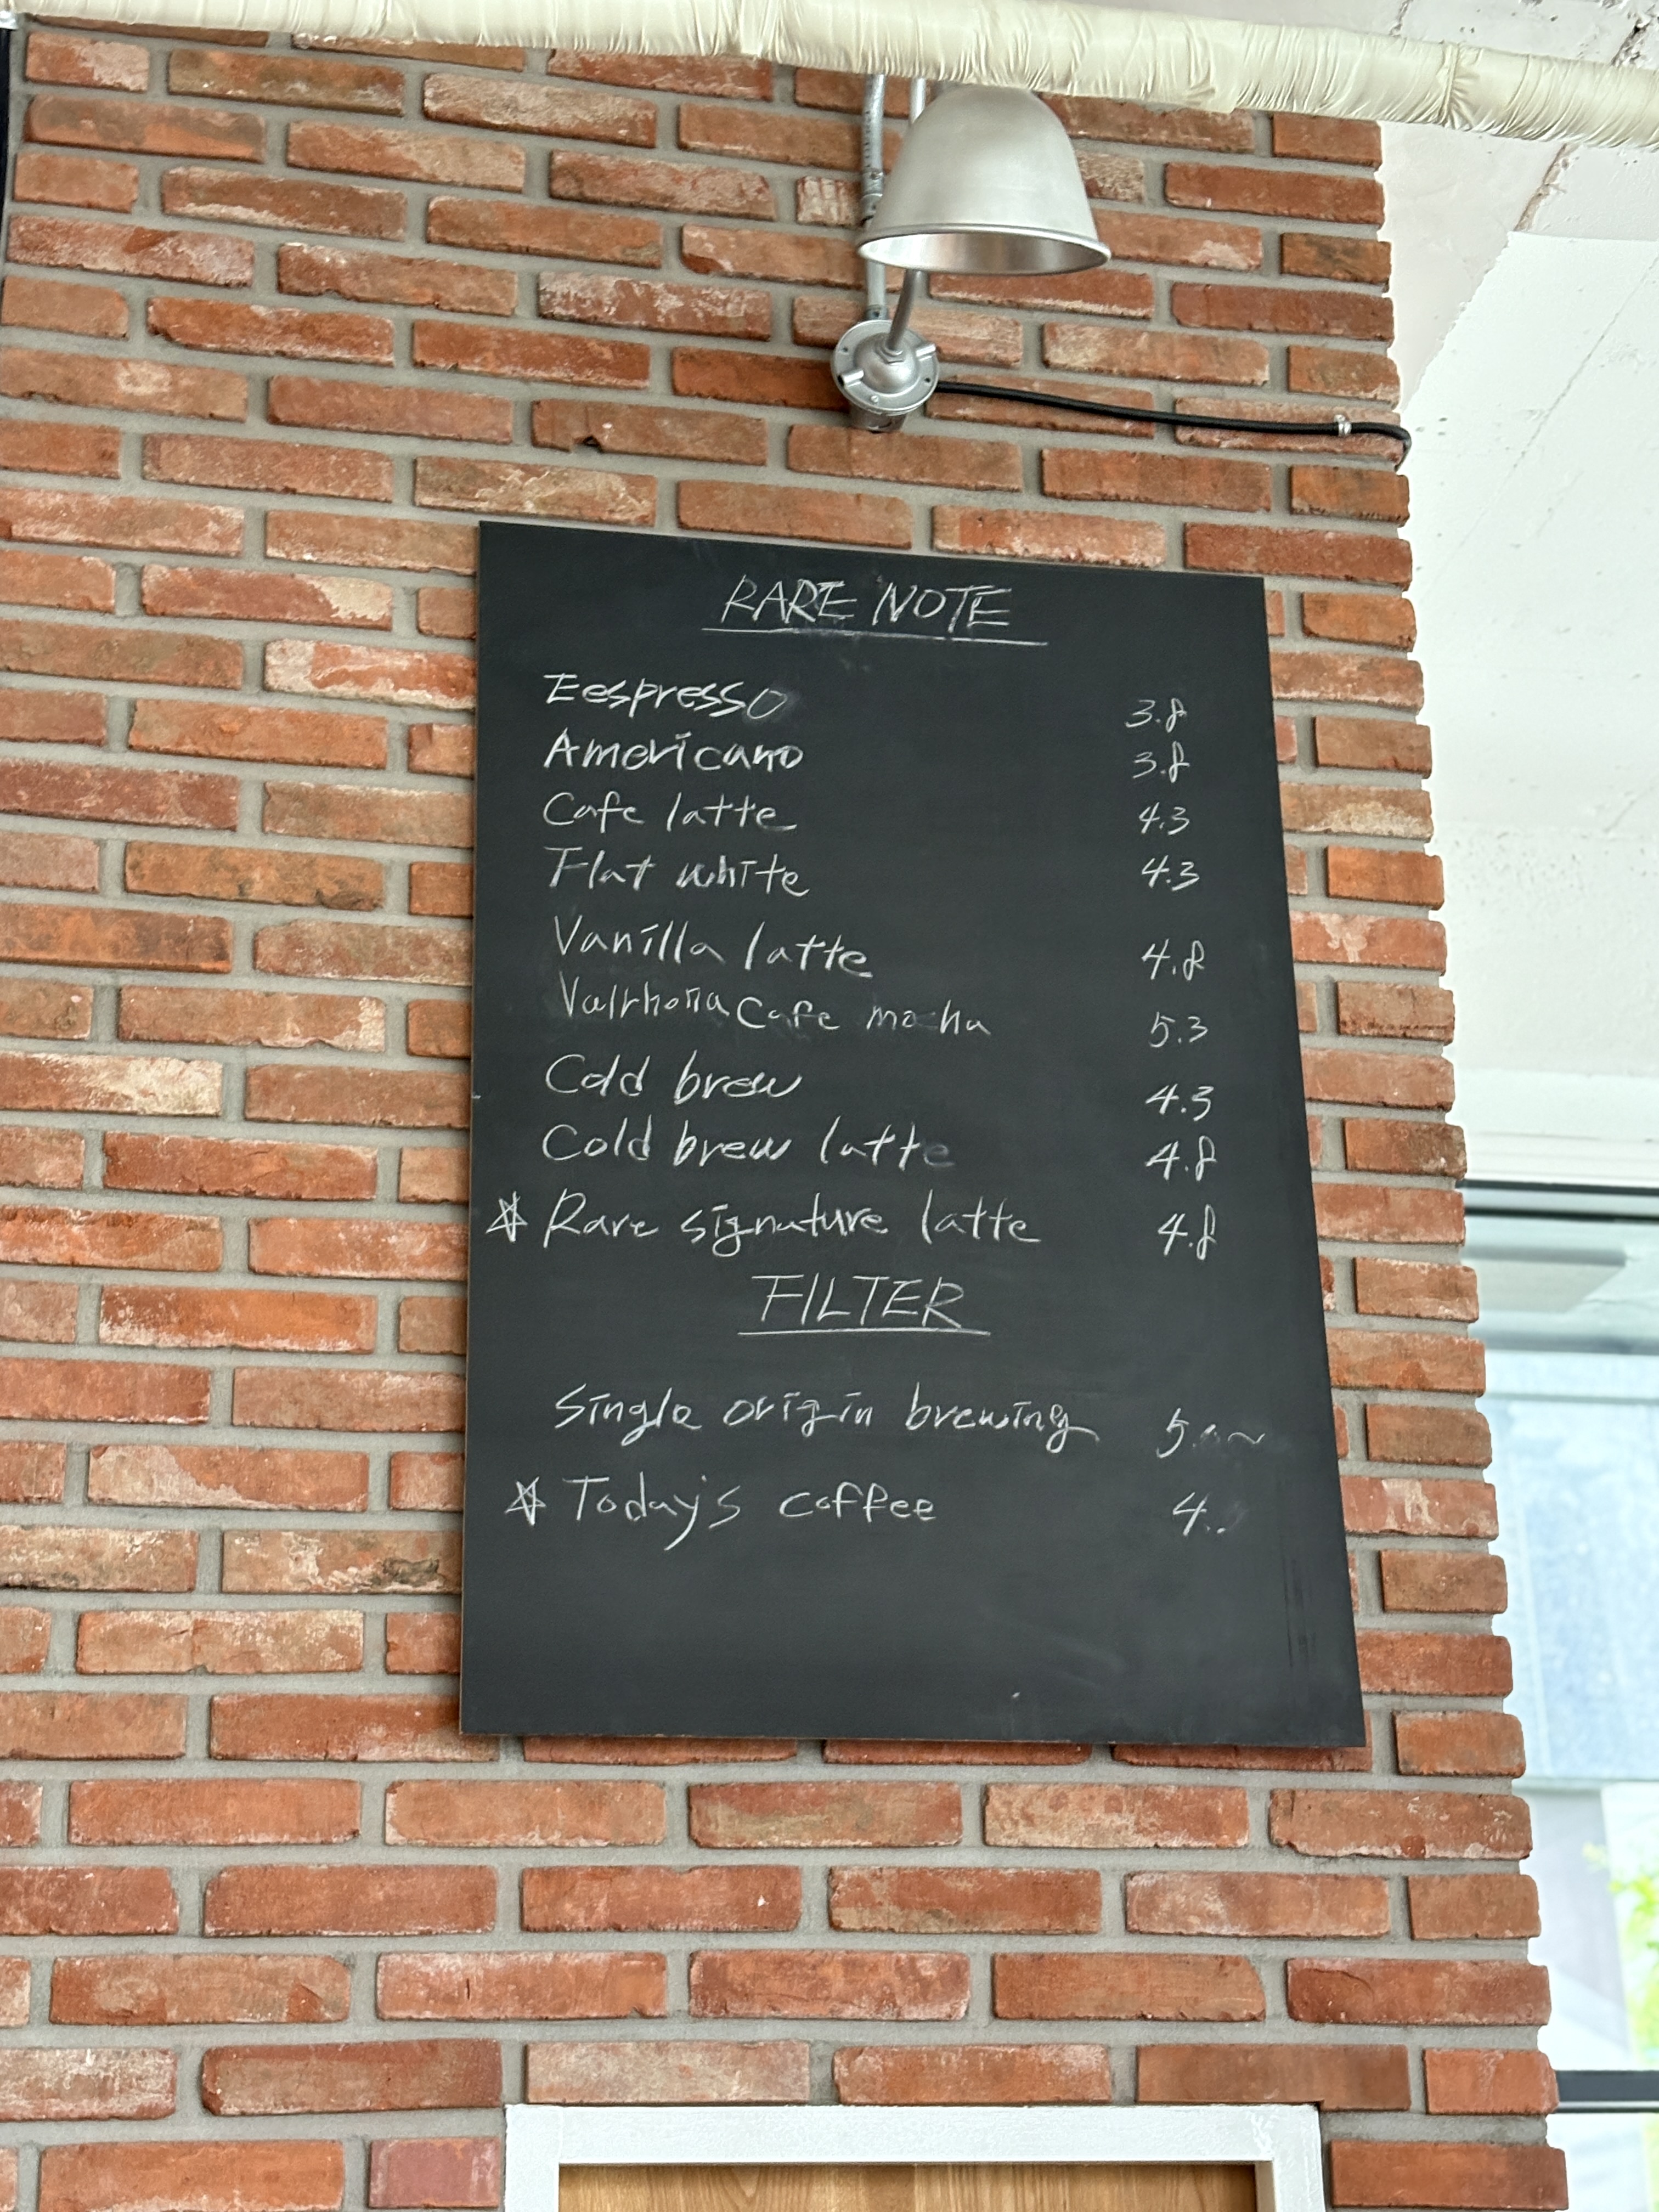 RARE NOTE
Eespresso 3.8
Americano 3.8
Cafe latte 4.3
Flat white 4.3
Vanilla latte 4.8
Valrhona Cafe mocha 5.3
Cold brew 4.3
Cold brew latte 4.8
☆ Rare signature latte 4.8
FILTER
Single origin brewing
☆ Today's coffee